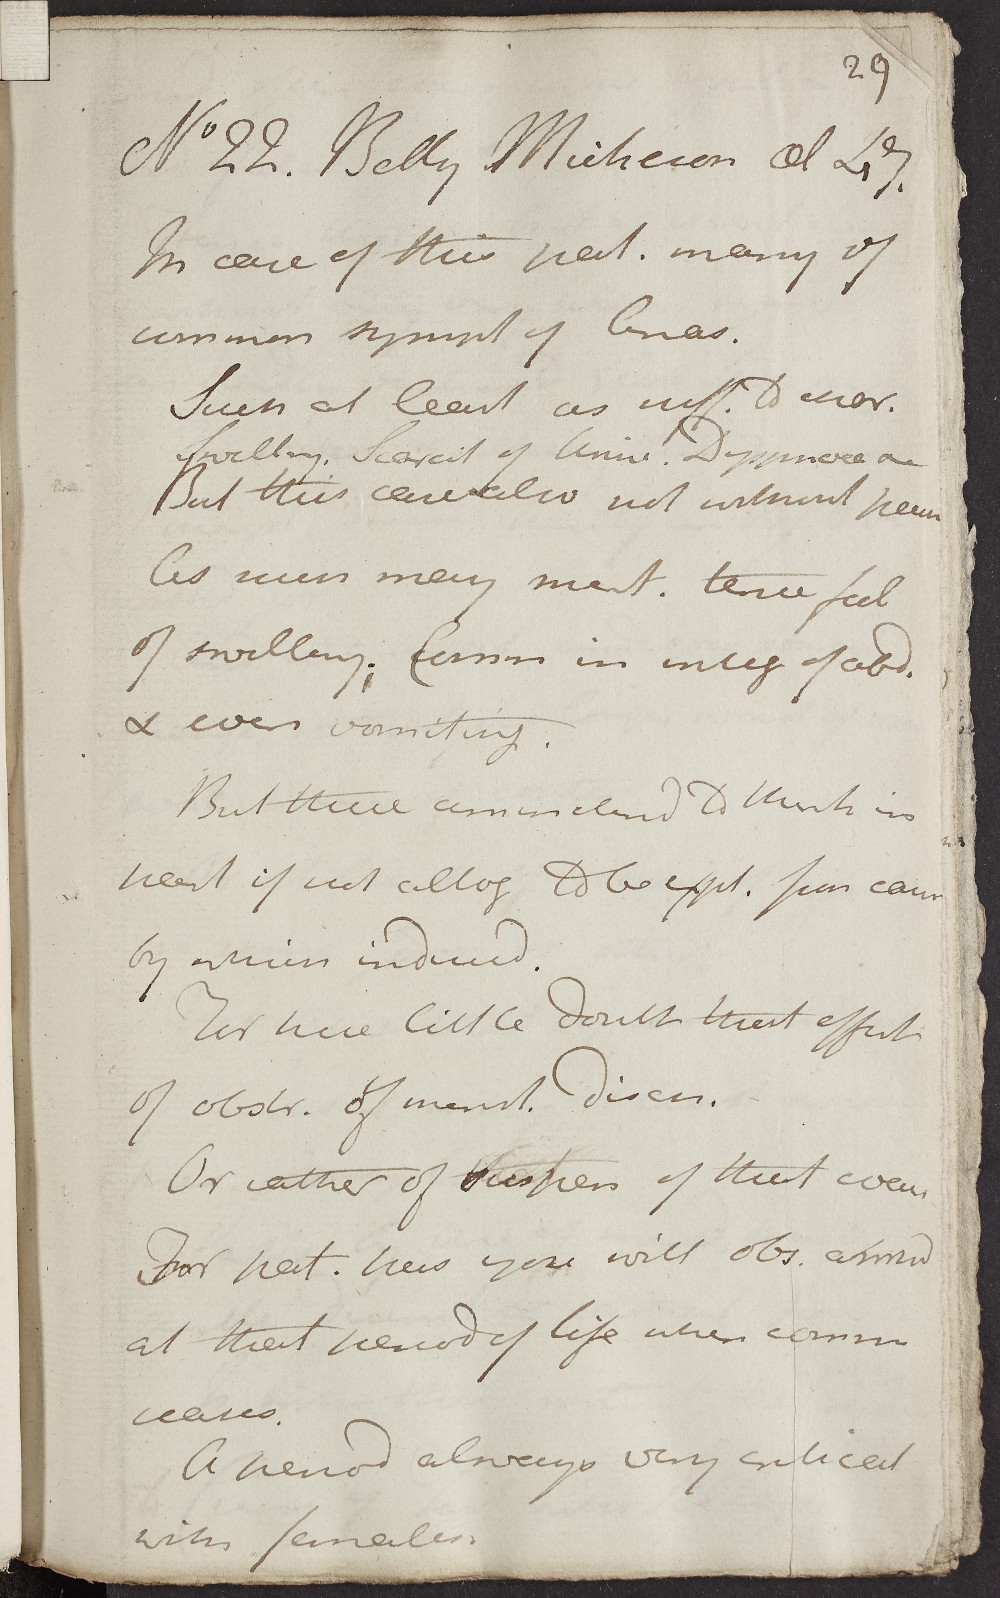 29
No 22. Betty Micheson
In case of this pat. many of
common sympt of Anas.
Such at least as suff. to char.
Swelling. Scarcit of Urine. Dyspnoea &c
But this case also not without pecu
As such may ment. tense feel
of swelling; Comm in integ of abd.
& even vomiting.
But these am inclined to think in
part if not altog to be expl. from cause
by which induced.
For here little doubt that effect
of obstr. of menst. disch.
Or rather of suspen of that evac
For pat. has you will obs. arrived
at that period of life when comm
ceases.
A period always very critical
with females.